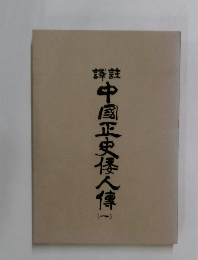 譯註
中國正史倭人傳
(一)